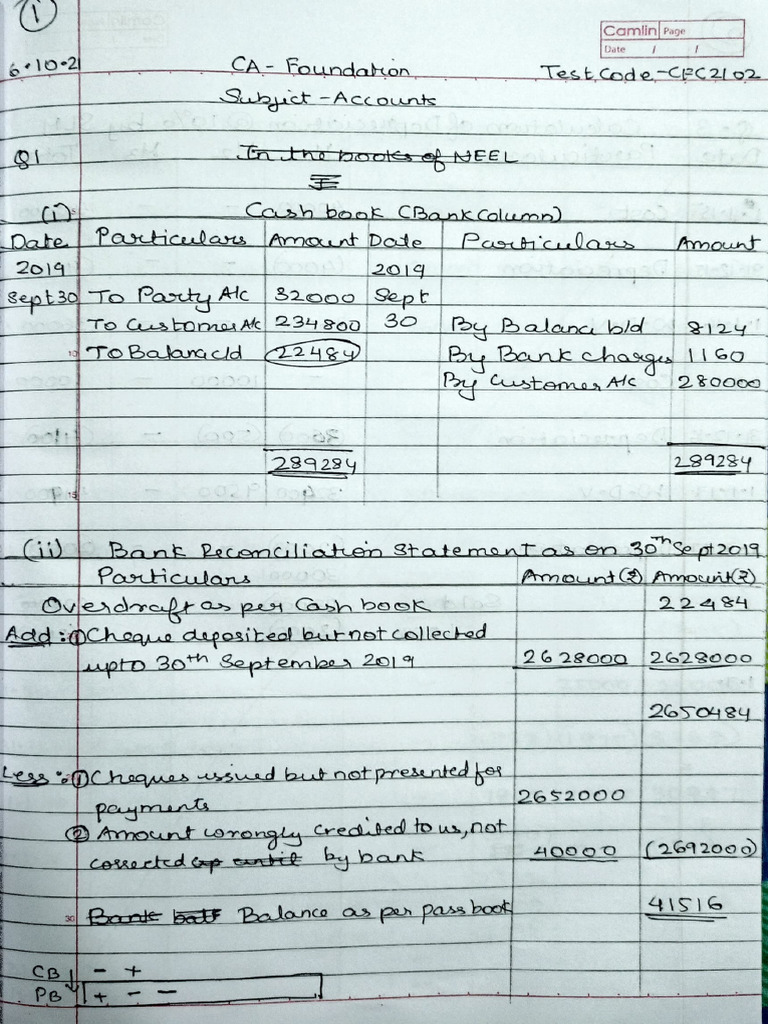 1
Camlin Page
Date / /
6.10.21 CA - Foundation Test Code - CFC2102
Subject - Accounts
Q1 In the books of NEEL
(i) Cash book (Bank Column)
Date Particulars Amount Date Particulars Amount
2019 2019
Sept 30 To Party A/c 32000 Sept
To Customer A/c 234800 30 By Balance b/d 8124
10 To Balance c/d 22484 By Bank charges 1160
By Customer A/c 280000
289284 289284
15
(ii) Bank Reconciliation Statement as on 30th Sept 2019
Particulars Amount (₹) Amount (₹)
Overdraft as per Cash book 22484
Add : ① Cheque deposited but not collected
upto 30th September 2019 2628000 2628000
2650484
Less : ① Cheques issued but not presented for
payments 2652000
② Amount wrongly credited to us, not
corrected by bank 40000 (2692000)
30 Bank Balance as per pass book 41516
CB ↓ - +
PB + - -